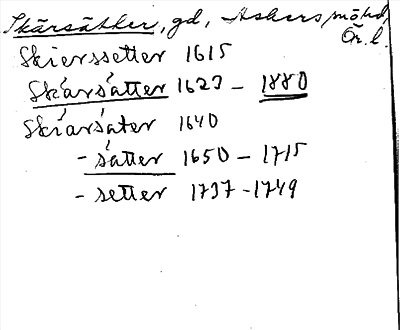 Skärsätter, gd, Askers ,
Ör. l.
Skierssetter 1615
Skársátter 1623 - 1880
Skiarsáter 1640
- sátter 1650 - 1715
- setter 1737 - 1749